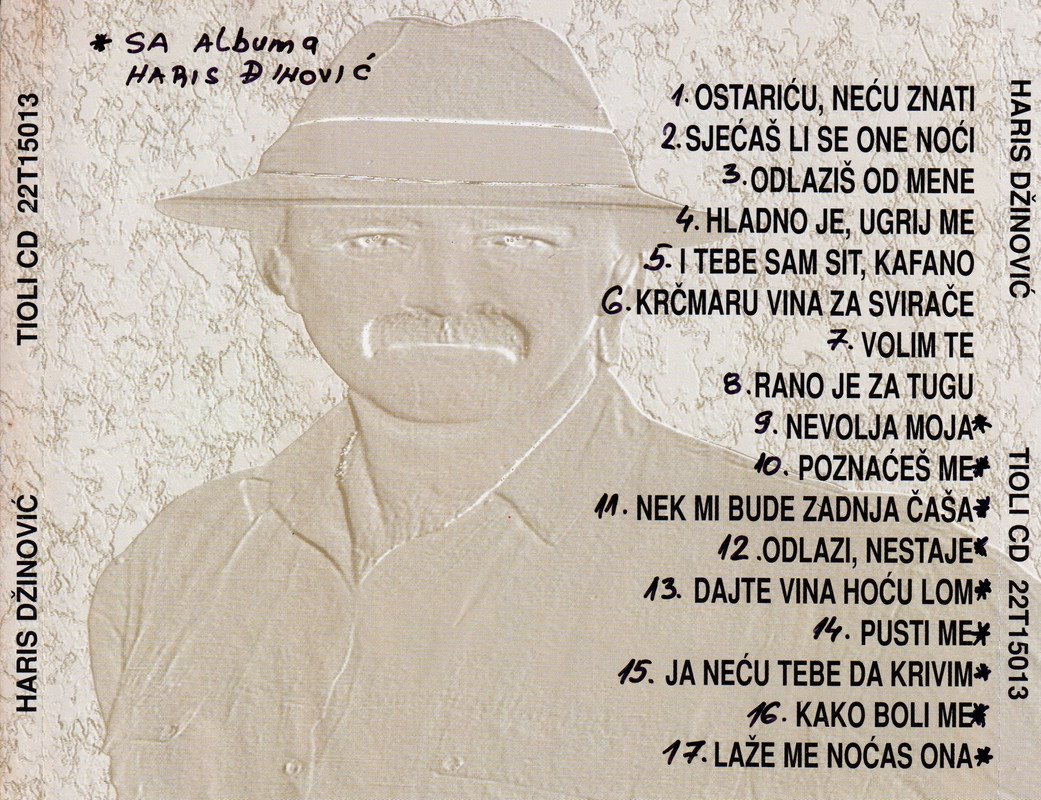 * SA Albuma
HARIS ĐINOVIĆ
1. OSTARIĆU, NEĆU ZNATI
2. SJEĆAŠ LI SE ONE NOĆI
3. ODLAZIŠ OD MENE
4. HLADNO JE, UGRIJ ME
5. I TEBE SAM SIT, KAFANO
6. KRČMARU VINA ZA SVIRAČE
7. VOLIM TE
8. RANO JE ZA TUGU
9. NEVOLJA MOJA*
10. POZNAĆEŠ ME*
11. NEK MI BUDE ZADNJA ČAŠA*
12. ODLAZI, NESTAJE*
13. DAJTE VINA HOĆU LOM*
14. PUSTI ME*
15. JA NEĆU TEBE DA KRIVIM*
16. KAKO BOLI ME*
17. LAŽE ME NOĆAS ONA*
HARIS DŽINOVIĆ TIOLI CD 22T15013
HARIS DŽINOVIĆ TIOLI CD 22T15013